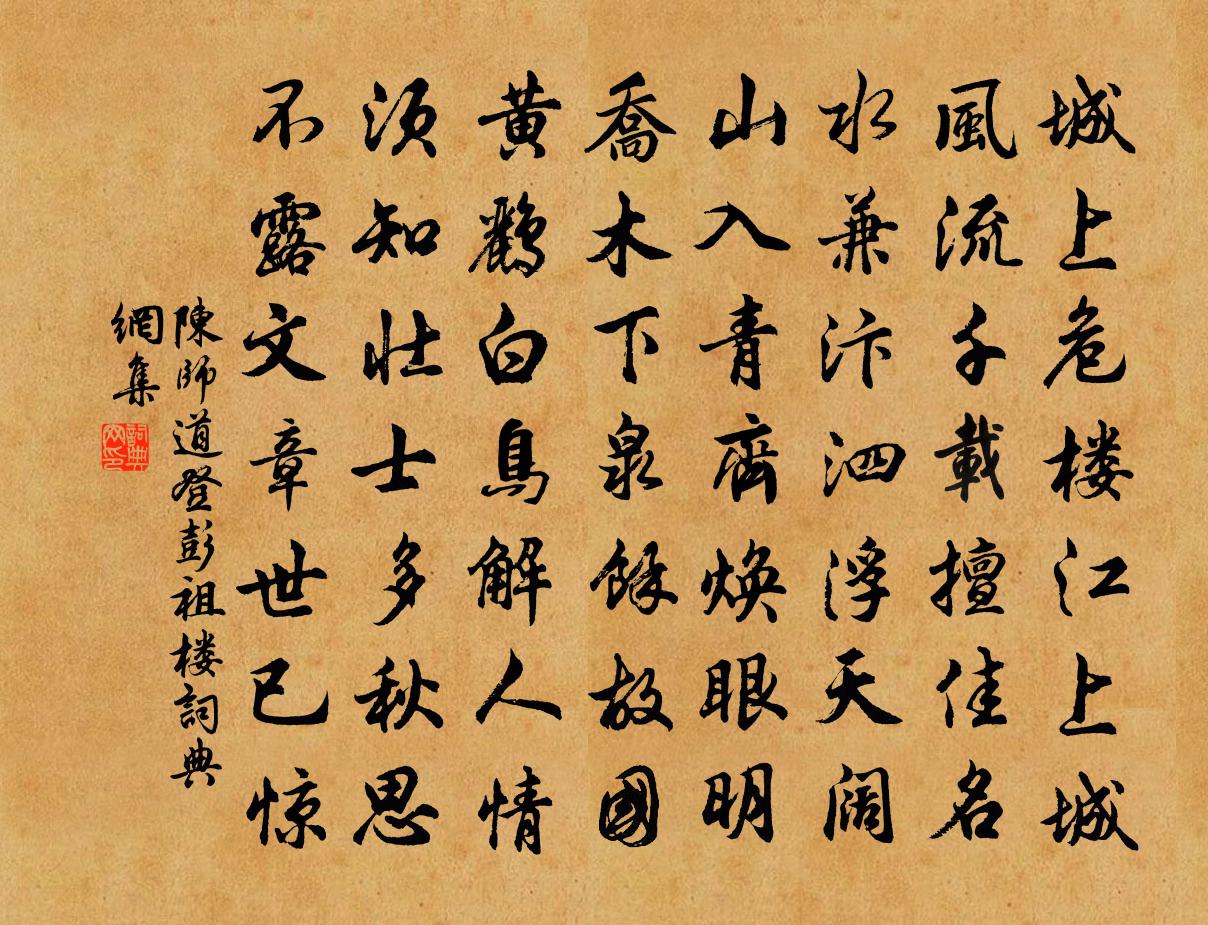 城上危楼江上城
風流千載擅佳名
水兼汴泗浮天闊
山入青齊煥眼明
喬木下泉餘故國
黄鸝白鳥解人情
須知壯士多秋思
不露文章世已惊
陳師道登彭祖楼詞典
網集
詞典
网印